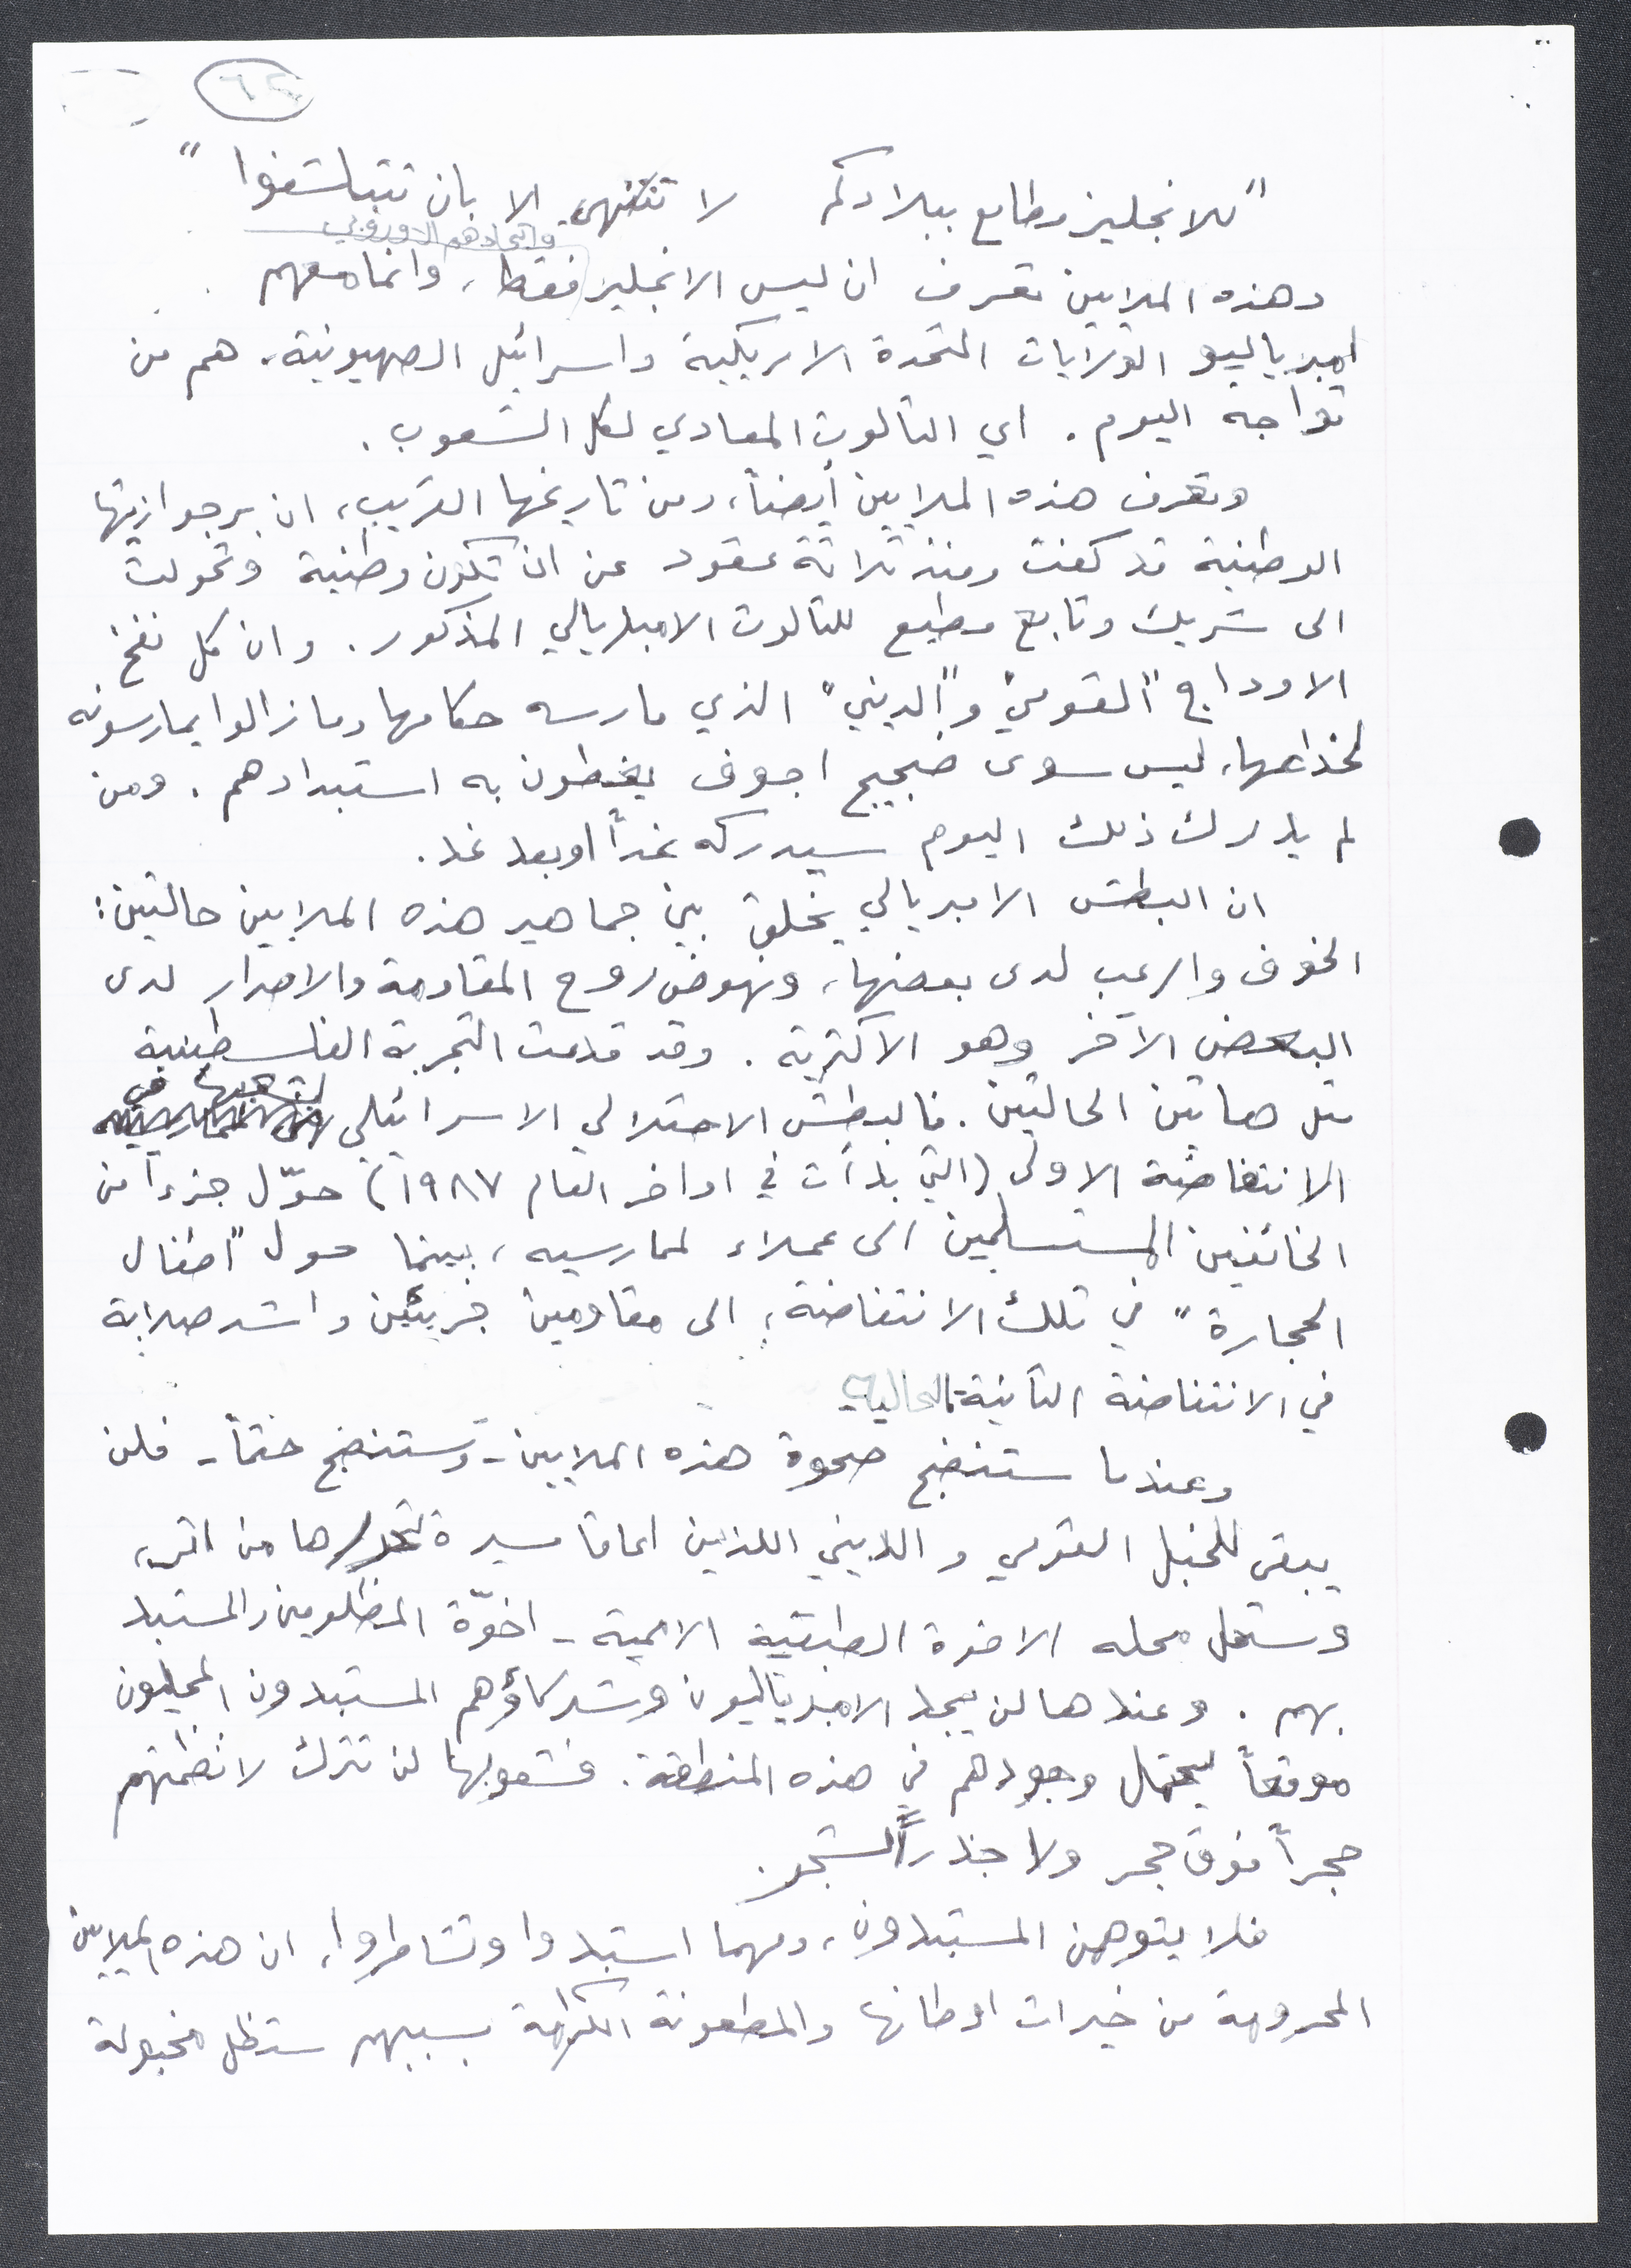 ٦٤
"للانجليز مطامع ببلادكم لا تنتهي الا بان تتبلشفوا"
واتحادهم الاوروبي
وهذه الملايين تعرف ان ليس الانجليز فقط، وانما معهم
امبرياليو الولايات المتحدة الامريكية واسرائيل الصهيونية، هم من
تواجه اليوم. اي الثالوث المعادي لكل الشعوب.
وتعرف هذه الملايين أيضاً، ومن تاريخها القريب، ان برجوازيتها
الوطنية قد كفت ومنذ ثلاثة عقود عن ان تكون وطنية وتحولت
الى شريك وتابع مطيع للثالوث الامبريالي المذكور. وان كل نفخ
الاوداج "القومي" و"الديني" الذي مارسه حكامها وما زالوا يمارسونه
لخداعها، ليس سوى ضجيج اجوف يغطون به استبدادهم. ومن
لم يدرك ذلك اليوم سيدركه غداً او بعد غد.
ان البطش الامبريالي يخلق بين جماهير هذه الملايين حالتين:
الخوف والرعب لدى بعضها، ونهوض روح المقاومة والاصرار لدى
البعض الآخر وهو الاكثرية. وقد قدمت التجربة الفلسطينية
مثل هاتين الحالتين. فالبطش الاحتلالي الاسرائيلي لشعبها في
الانتفاضة الاولى (التي بدأت في اواخر العام ١٩٨٧) حوّل جزءاً من
الخائفين المستسلمين الى عملاء لممارسيه، بينما حول "اطفال
الحجارة" في تلك الانتفاضة، الى مقاومين جريئين واشد صلابة
في الانتفاضة الثانية الحالية.
وعندما ستنضج صحوة هذه الملايين - وستنضج حتماً - فلن
يبقى للخبل القومي والديني اللذين اعاقا مسيرة تحررها من اثر،
وستحل محله الاخوة الطبقية الاممية - اخوّة المظلومين والمستبد
بهم. وعندها لن يجد الامبرياليون وشركاؤهم المستبدون المحليون
موقعاً يحتمل وجودهم في هذه المنطقة. فشعوبها لن تترك لانظمتهم
حجراً فوق حجر ولا جذراً لشجر.
فلا يتوهمن المستبدون، ومهما استبدوا وتشاطروا، ان هذه الملايين
المحرومة من خيرات اوطانها والمطعونة الكرامة بسببهم ستظل مخبولة